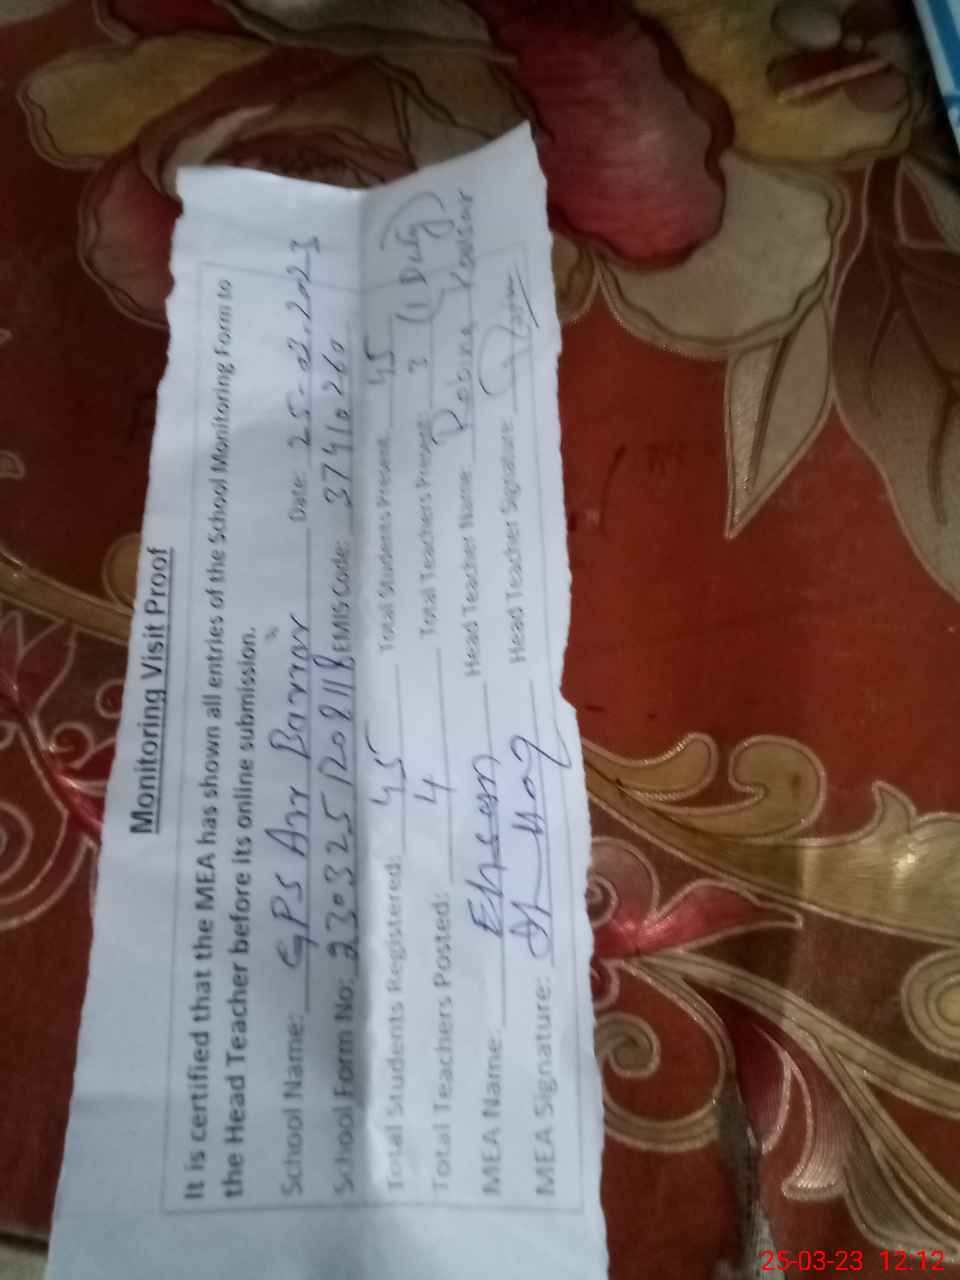 Monitoring Visit Proof
It is certified that the MEA has shown all entries of the School Monitoring Form to
the Head Teacher before its online submission.
School Name: GPS Arr Barrar Date: 25-03-2023
School Form No: EMIS Code: 37410260
Total Students Registered: 45 Total Students Present: 45
Total Teachers Posted: 4 Total Teachers Present: 3 (1 Duty)
MEA Name: Ehsan Head Teacher Name: Robina Kousar
MEA Signature: Head Teacher Signature:
25-03-23 12:12